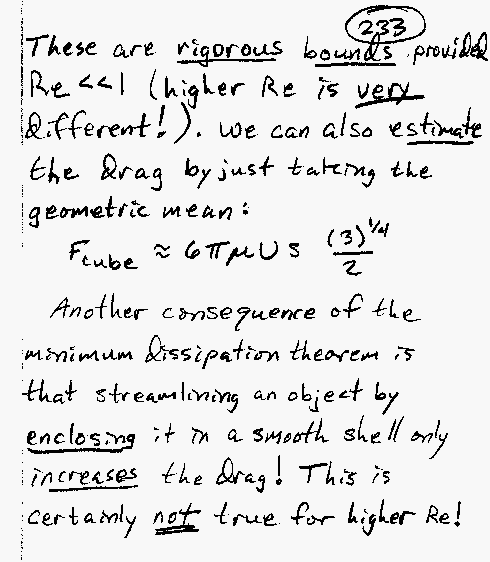 233
These are rigorous bounds provided
Re <<1 (higher Re is very
different!). We can also estimate
the drag by just taking the
geometric mean:
F_cube ≈ 6πμUs (3)^1/4 / 2
Another consequence of the
minimum dissipation theorem is
that streamlining an object by
enclosing it in a smooth shell only
increases the drag! This is
certainly not true for higher Re!